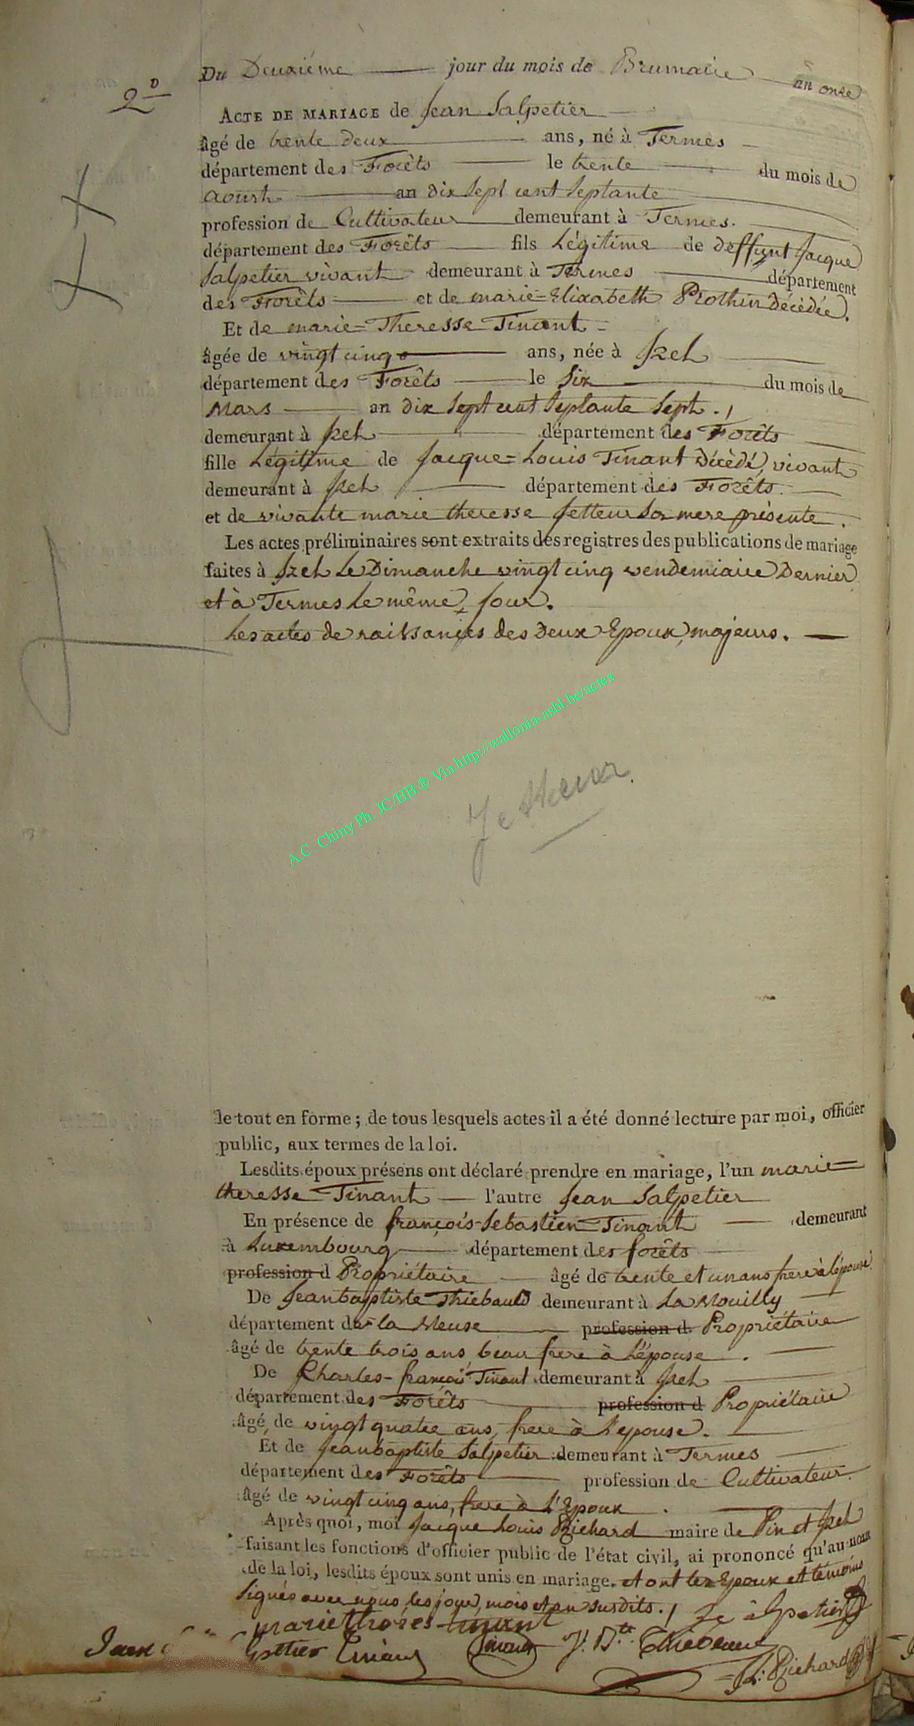 2º
Du Deuxiéme jour du mois de Brumaire an onze
ACTE DE MARIAGE de Jean Salpetier
âgé de trente deux ans, né à Termes
département des Forêts le trente du mois de
aoust an dix Sept cent Septante
profession de Cultivateur demeurant à Termes.
département des Forêts fils Légitime de deffunt Jacque
Salpetier vivant demeurant à Termes département
des Forêts et de marie=Elixabeth décédée.
Et de marie=Theresse Tinant
âgée de vingt cinq ans, née à Izel
département des Forêts le Six du mois de
Mars an dix Sept cent Septante Sept.
demeurant à Izel département des Forêts
fille Légitime de Jacque=Louis Tinant Décédé, vivant
demeurant à Izel département des Forêts.
et de vivante marie theresse Jetteur Sa mere présente.
Les actes préliminaires sont extraits des registres des publications de mariage
faites à Izel Le Dimanche vingt cinq vendemiaire Dernier
et à Termes Le même Jour.
Les actes de naissances des Deux Epoux, majeurs.
A.C Chiny Ph. JC/HB ® Via http://wallonia-asbl.be/actes
le tout en forme ; de tous lesquels actes il a été donné lecture par moi, officier
public, aux termes de la loi.
Lesdits époux présens ont déclaré prendre en mariage, l'un marie=
theresse Tinant l'autre Jean Salpetier
En présence de françois-Sebastien Tinant demeurant
à Luxembourg département des forêts
profession d Propriétaire âgé de trente et un ans frere à L'épouse
De Jeanbaptiste Thiebauld demeurant à La Mouilly
département de la Meuse profession d Propriétaire
âgé de trente trois ans beau frere à L'épouse.
De Charles-françois Tinant demeurant à Izel
département des Forêts profession d Propriétaire
âgé de vingt quatre ans, frere à l'epouse.
Et de Jeanbaptiste Salpetier demeurant à Termes
département des Forêts profession de Cultivateur.
âgé de vingt cinq ans, frere à L'Epoux.
Après quoi, moi Jacque Louis Richard maire de Pin et Izel
faisant les fonctions d'officier public de l'état civil, ai prononcé qu'au nom
de la loi, lesdits époux sont unis en mariage. et ont les Epoux et témoins
Signés avec nous les jour, mois et an Susdits.
Salpetier
marie theres tinant
Jean Tinant Tinant J. Bte Thiebauld
Richard